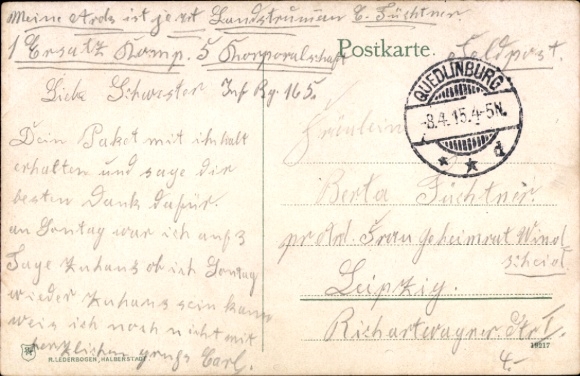 Meine Ards ist jezt Landstruman C. Füchtner.
1 Ersatz Komp. 5 Korporalschaft
Postkarte.
Feldpost.
Liebe Schwester Inf Rg. 165.
QUEDLINBURG
-8.4.15.4-5N.
* * d
Fräulein
Dein Paket mit ihnhalt
erhalten und sage dir
besten Dank dafür.
an Sontag war ich auf 3
Tage zuhaus ob ich Sontag
wieder zuhaus sein kann
weis ich noch nicht mit
herzlichen gruss Carl.
Berta Füchtner.
pr Ard. Frau Geheimrat Wind
scheid.
Leipzig.
Richartwagner Str I
4.-
19217
R. LEDERBOGEN, HALBERSTADT